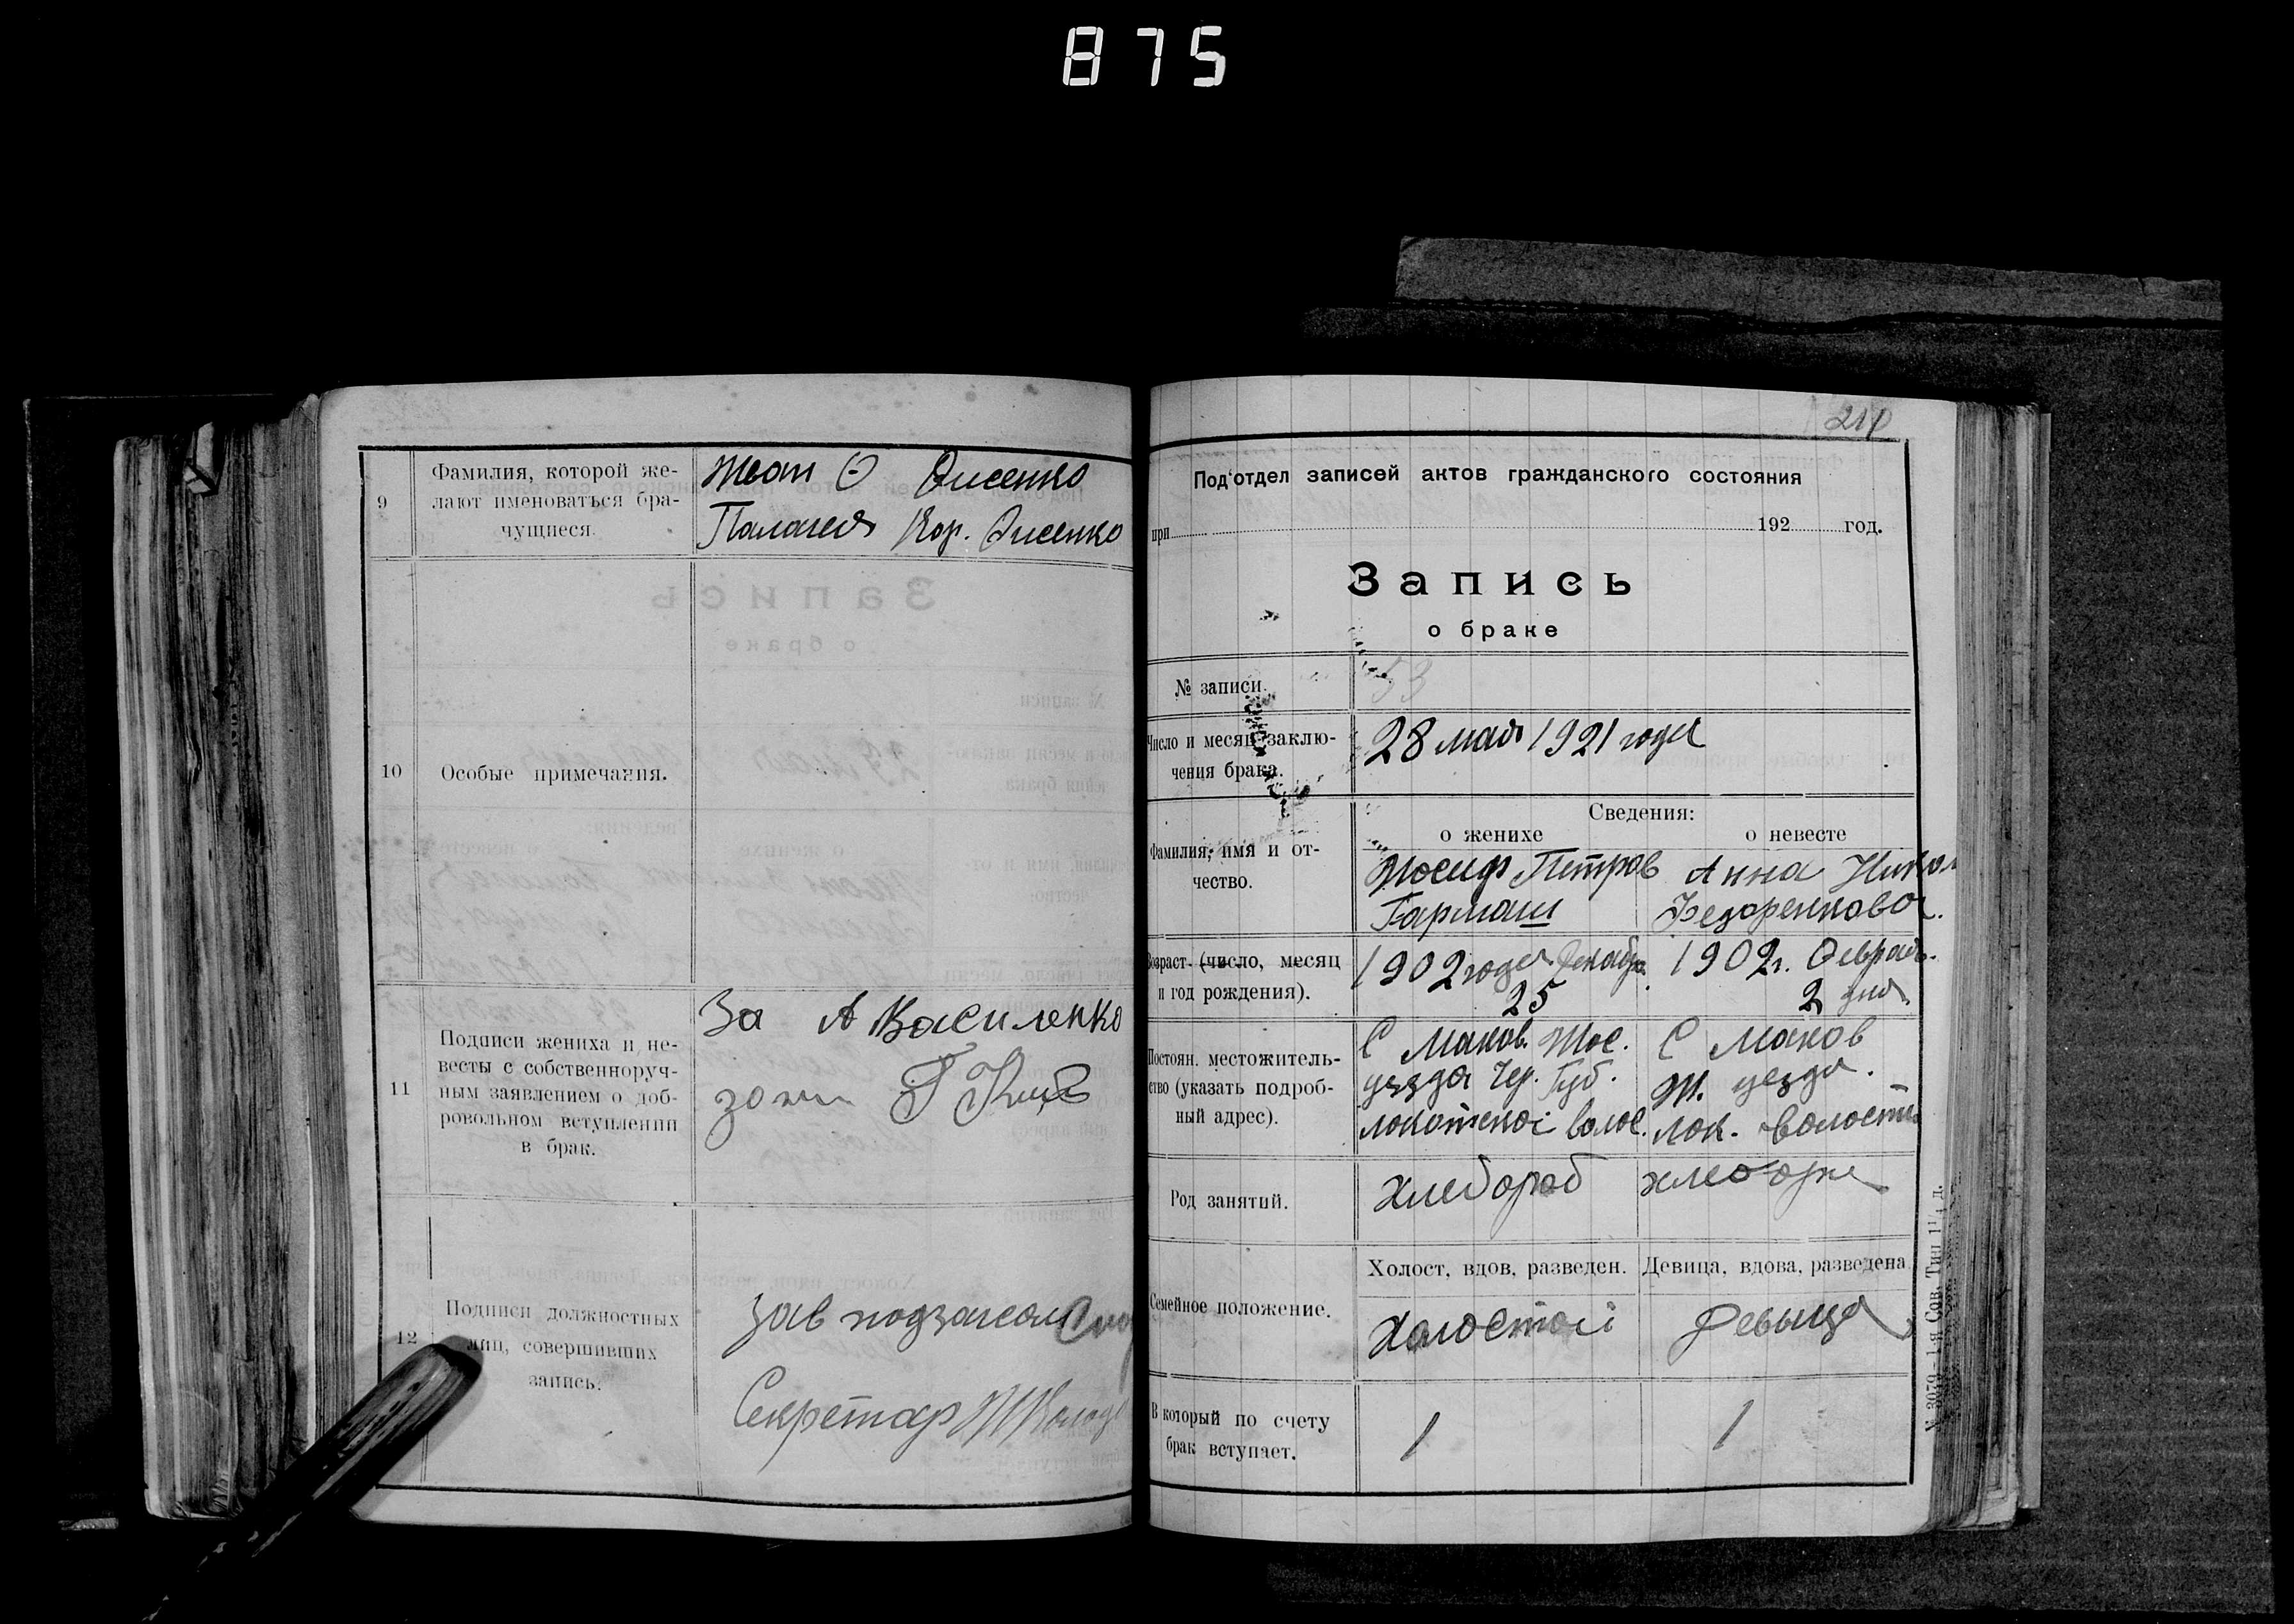 875
9
Фамилия, которой же-
лают именоваться бра-
чущиеся.
Иван Ѳ Онсенко
Палагея Кор. Онсенко
10
Особые примечания.
11
Подписи жениха и не-
весты с собственноруч-
ным заявлением о доб-
ровольном вступлении
в брак.
За А Василенко
12
Подписи должностных
лиц, совершивших
запись.
Зав подзагсом
Секретар
Под'отдел записей актов гражданского состояния
при 192 год.
Запись
о браке
№ записи.
53
Число и месяц заклю-
чения брака.
28 мая 1921 года
Сведения:
о женихе
о невесте
Фамилия, имя и от-
чество.
Иосиф Петров
Гармаш
Анна Никол
Федоренкова.
Возраст (число, месяц
и год рождения).
1902 года Декабр.
25
1902 г. Февраль.
2 дня.
Постоян. местожитель-
ство (указать подроб-
ный адрес).
С Маков.
уезда Чер. Губ.
локотской волос.
С Маков
уезда.
лок. волости
Род занятий.
Хлебороб
Семейное положение.
Холост, вдов, разведен.
Девица, вдова, разведена
Холостой
Девыца
В который по счету
брак вступает.
1
1